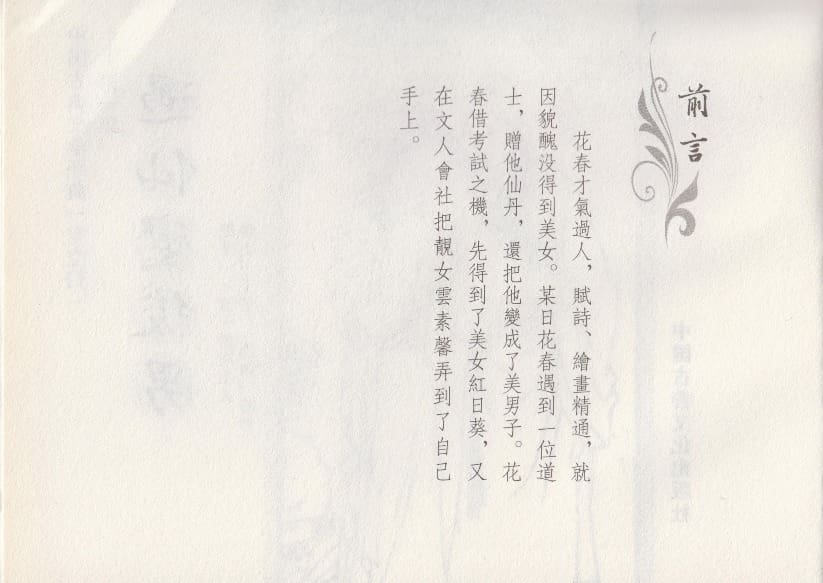 前言
花春才氣過人，賦詩、繪畫精通，就
因貌醜没得到美女。某日花春遇到一位道
士，贈他仙丹，還把他變成了美男子。花
春借考試之機，先得到了美女紅日葵，又
在文人會社把靚女雲素馨弄到了自己
手上。